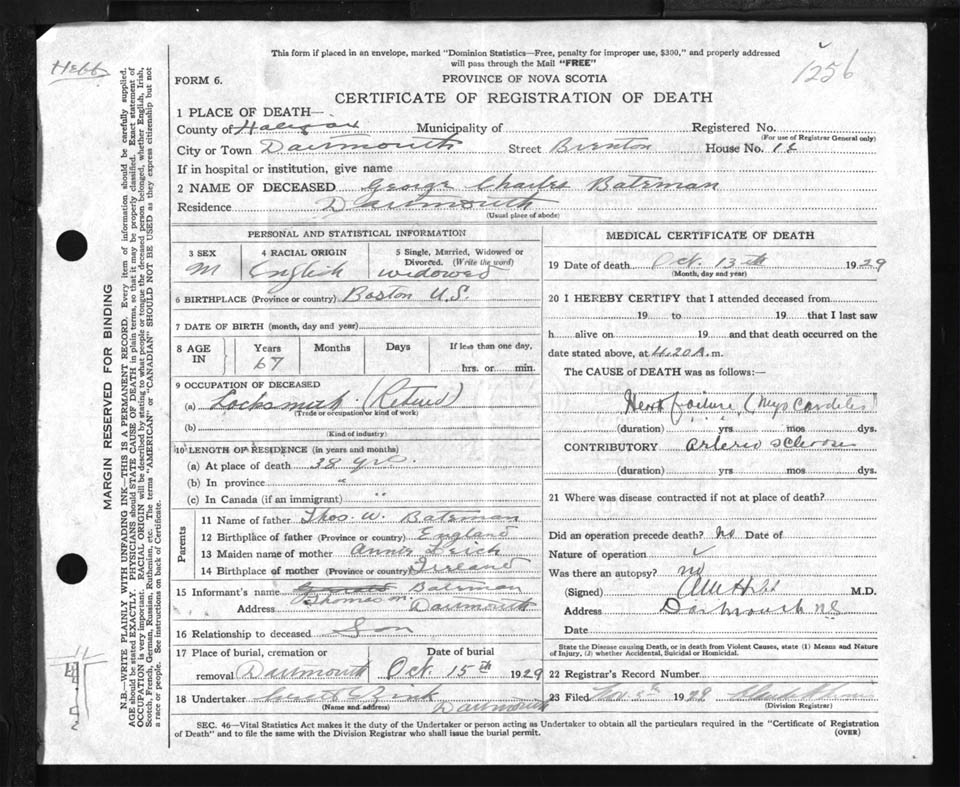 This form if placed in an envelope, marked "Dominion Statistics—Free, penalty for improper use, $300," and properly addressed
will pass through the Mail "FREE"
Hebb
1256
FORM 6.
PROVINCE OF NOVA SCOTIA
CERTIFICATE OF REGISTRATION OF DEATH
MARGIN RESERVED FOR BINDING
N.B.—WRITE PLAINLY WITH UNFADING INK—THIS IS A PERMANENT RECORD. Every item of information should be carefully supplied.
AGE should be stated EXACTLY. PHYSICIANS should STATE CAUSE OF DEATH in plain terms, so that it may be properly classified. Exact statement of
OCCUPATION is very important. RACIAL ORIGIN will be described by stating to what people or tongue the deceased person belonged, whether English, Irish,
Scotch, French, German, Russian, Ruthenian, etc. The terms "AMERICAN" or "CANADIAN" SHOULD NOT BE USED as they express citizenship but not
a race or people. See instructions on back of Certificate.
1 PLACE OF DEATH—
County of Halifax Municipality of Registered No.
(For use of Registrar General only)
City or Town Dartmouth Street Brenton House No.
If in hospital or institution, give name
2 NAME OF DECEASED George Charles Bateman
Residence Dartmouth
(Usual place of abode)
PERSONAL AND STATISTICAL INFORMATION
3 SEX M
4 RACIAL ORIGIN English
5 Single, Married, Widowed or Divorced. (Write the word) widowed
6 BIRTHPLACE (Province or country) Boston U.S.
7 DATE OF BIRTH (month, day and year)
8 AGE IN Years 67 Months Days If less than one day, hrs. or min.
9 OCCUPATION OF DECEASED
(a) Locksmith (Retired)
(Trade or occupation or kind of work)
(b)
(Kind of industry)
10 LENGTH OF RESIDENCE (in years and months)
(a) At place of death 38 yrs.
(b) In province "
(c) In Canada (if an immigrant) "
Parents
11 Name of father Thos. W. Bateman
12 Birthplace of father (Province or country) England
13 Maiden name of mother Annie
14 Birthplace of mother (Province or country) Ireland
15 Informant's name Bateman
Address Thomas Dartmouth
16 Relationship to deceased Son
17 Place of burial, cremation or removal Dartmouth Date of burial Oct. 15th 1929
18 Undertaker Zink
(Name and address) Dartmouth
MEDICAL CERTIFICATE OF DEATH
19 Date of death Oct. 13th 1929
(Month, day and year)
20 I HEREBY CERTIFY that I attended deceased from
19 to 19 that I last saw
h alive on 19 and that death occurred on
date stated above, at 4.20 A. m.
The CAUSE of DEATH was as follows:—
Heart failure (Myocarditis)
(duration) yrs mos dys.
CONTRIBUTORY Arterio sclerosis
(duration) yrs mos dys.
21 Where was disease contracted if not at place of death?
Did an operation precede death? No Date of
Nature of operation
Was there an autopsy? no
(Signed) Hebb M.D.
Address Dartmouth N.S
Date
State the Disease causing Death, or in death from Violent Causes, state (1) Means and Nature
of Injury, (2) whether Accidental, Suicidal or Homicidal.
22 Registrar's Record Number
23 Filed 1929
(Division Registrar)
SEC. 46—Vital Statistics Act makes it the duty of the Undertaker or person acting as Undertaker to obtain all the particulars required in the "Certificate of Registration
of Death" and to file the same with the Division Registrar who shall issue the burial permit.
(OVER)